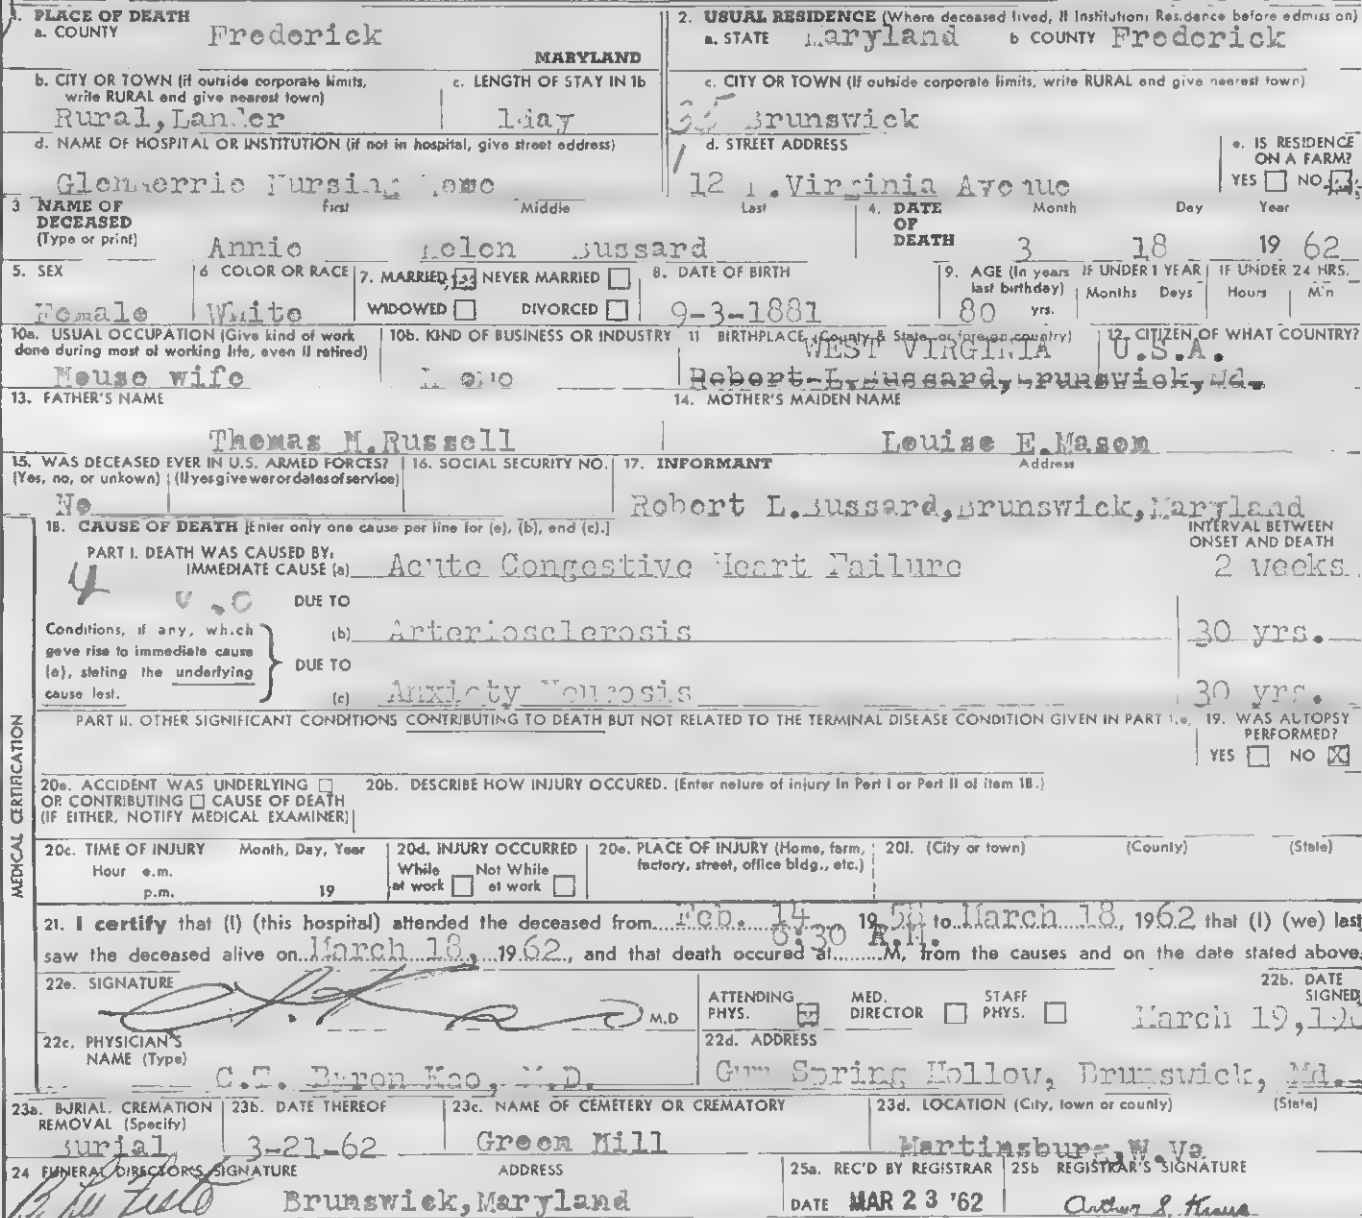 1. PLACE OF DEATH
a. COUNTY Frederick
MARYLAND
2. USUAL RESIDENCE (Where deceased lived, If Institution: Residence before admission)
a. STATE Maryland b COUNTY Frederick
b. CITY OR TOWN (if outside corporate limits, write RURAL and give nearest town)
Rural, Lander
c. LENGTH OF STAY IN 1b
1 day
c. CITY OR TOWN (If outside corporate limits, write RURAL and give nearest town)
Brunswick
d. NAME OF HOSPITAL OR INSTITUTION (if not in hospital, give street address)
Nursing Home
d. STREET ADDRESS
12 Virginia Avenue
e. IS RESIDENCE ON A FARM?
YES NO
3 NAME OF DECEASED (Type or print)
First Middle Last
Annie Helen Bussard
4. DATE OF DEATH
Month Day Year
3 18 19 62
5. SEX
Female
6 COLOR OR RACE
White
7. MARRIED NEVER MARRIED
WIDOWED DIVORCED
8. DATE OF BIRTH
9-3-1881
9. AGE (In years last birthday)
80 yrs.
IF UNDER 1 YEAR
Months Days
IF UNDER 24 HRS.
Hours Min
10a. USUAL OCCUPATION (Give kind of work done during most of working life, even if retired)
House wife
10b. KIND OF BUSINESS OR INDUSTRY
Home
11 BIRTHPLACE (County & State, or foreign country)
WEST VIRGINIA
Robert L. Bussard, Brunswick, Md.
12. CITIZEN OF WHAT COUNTRY?
U.S.A.
13. FATHER'S NAME
Thomas M. Russell
14. MOTHER'S MAIDEN NAME
Louise E. Mason
15. WAS DECEASED EVER IN U.S. ARMED FORCES?
(Yes, no, or unkown) (If yes give war or dates of service)
No
16. SOCIAL SECURITY NO.
17. INFORMANT Address
Robert L. Bussard, Brunswick, Maryland
MEDICAL CERTIFICATION
18. CAUSE OF DEATH [Enter only one cause per line for (a), (b), and (c).]
INTERVAL BETWEEN ONSET AND DEATH
PART I. DEATH WAS CAUSED BY:
IMMEDIATE CAUSE (a) Acute Congestive Heart Failure 2 weeks
DUE TO
(b) Arteriosclerosis 30 yrs.
Conditions, if any, which gave rise to immediate cause (a), stating the underlying cause last.
DUE TO
(c) Anxiety Neurosis 30 yrs.
PART II. OTHER SIGNIFICANT CONDITIONS CONTRIBUTING TO DEATH BUT NOT RELATED TO THE TERMINAL DISEASE CONDITION GIVEN IN PART 1.a.
19. WAS AUTOPSY PERFORMED?
YES NO X
20a. ACCIDENT WAS UNDERLYING
OR CONTRIBUTING CAUSE OF DEATH
(IF EITHER, NOTIFY MEDICAL EXAMINER)
20b. DESCRIBE HOW INJURY OCCURED. (Enter nature of injury in Part I or Part II of item 18.)
20c. TIME OF INJURY Month, Day, Year
Hour a.m.
p.m. 19
20d. INJURY OCCURRED
While at work Not While at work
20e. PLACE OF INJURY (Home, farm, factory, street, office bldg., etc.)
20f. (City or town) (County) (State)
21. I certify that (I) (this hospital) attended the deceased from Feb. 14 1958 to March 18, 1962 that (I) (we) last
saw the deceased alive on March 18, 1962, and that death occured at 6:30 A.M. M, from the causes and on the date stated above.
22a. SIGNATURE
M.D
ATTENDING PHYS.
MED. DIRECTOR
STAFF PHYS.
22b. DATE SIGNED
March 19,
22c. PHYSICIAN'S NAME (Type)
C.T. Byron Kao, M.D.
22d. ADDRESS
Gum Spring Hollow, Brunswick, Md.
23a. BURIAL, CREMATION REMOVAL (Specify)
Burial
23b. DATE THEREOF
3-21-62
23c. NAME OF CEMETERY OR CREMATORY
Green Hill
23d. LOCATION (City, town or county) (State)
Martinsburg, W. Va
24 FUNERAL DIRECTOR'S SIGNATURE ADDRESS
Brunswick, Maryland
25a. REC'D BY REGISTRAR
DATE MAR 23 '62
25b REGISTRAR'S SIGNATURE
Arthur S. Kraus